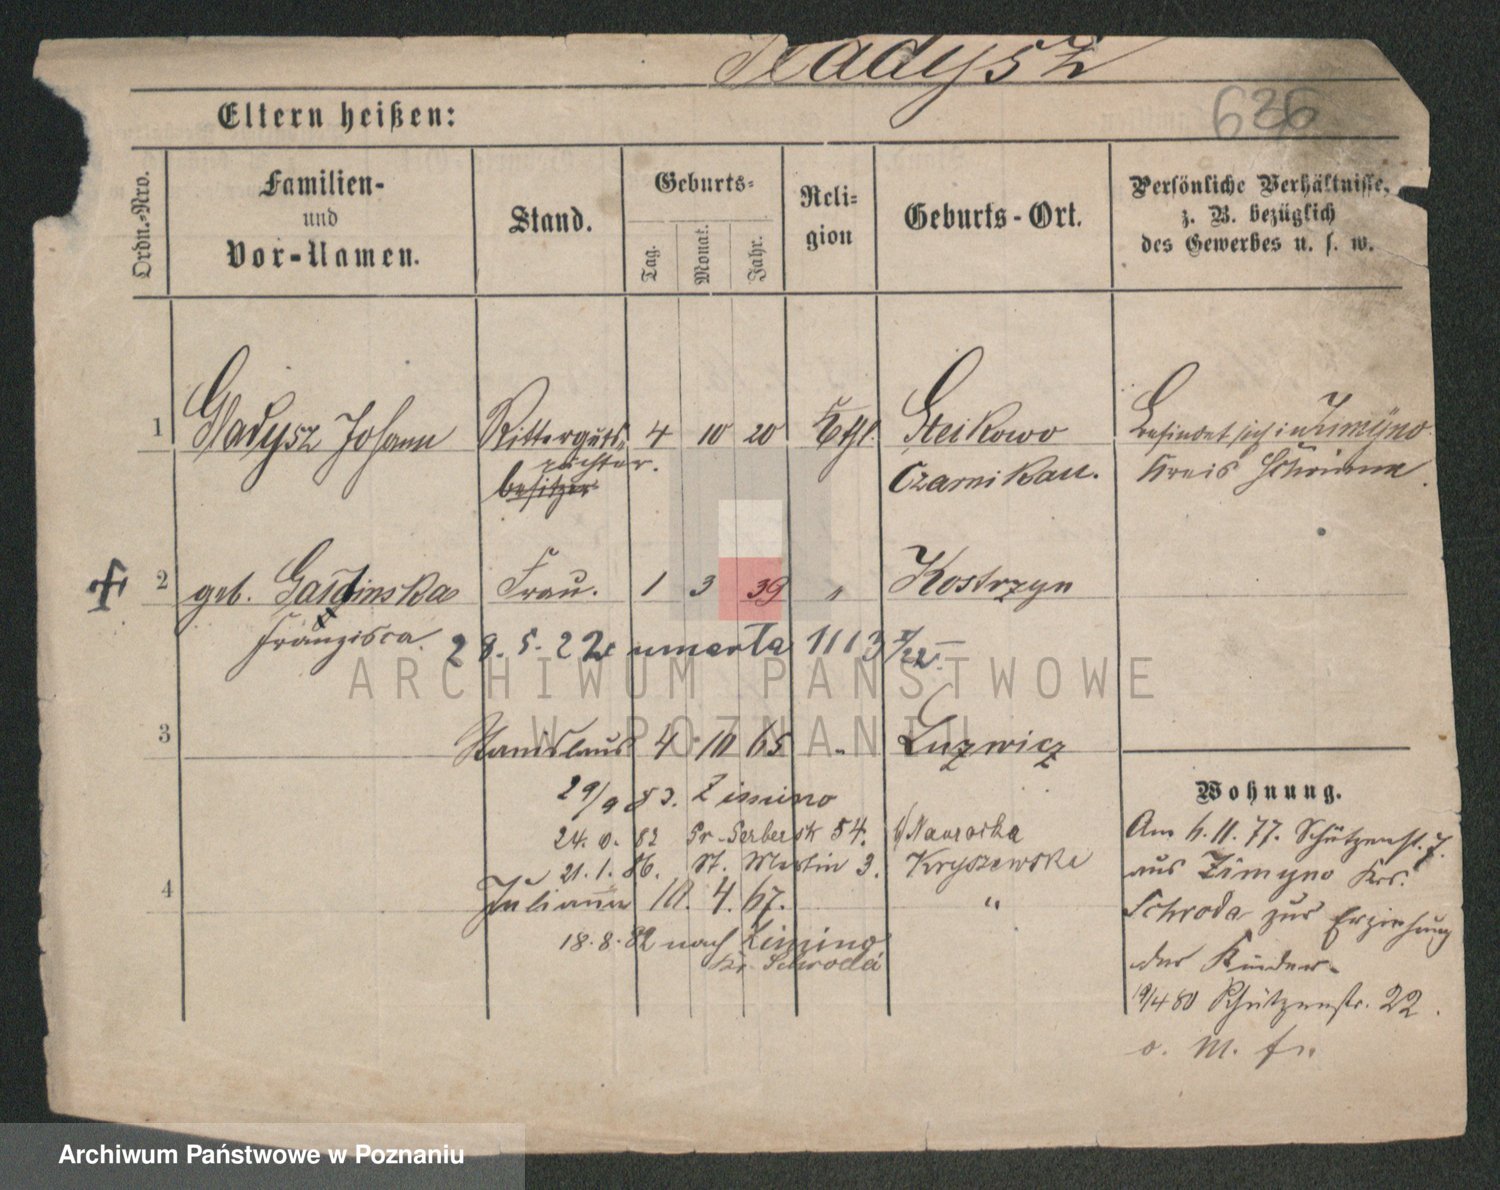 Gladysz
636
Eltern heißen:
Ordn.-Nro.
Familien-
und
Vor-Namen.
Stand.
Geburts-
Tag. Monat. Jahr.
Reli-
gion
Geburts-Ort.
Persönliche Verhältnisse,
z. B. bezüglich
des Gewerbes u. s. w.
1 Gladysz Johann Ritterguts- 4 10 20 Kthl. Befindet sich in Zimyno
pächter.
besitzer
Czarnikau. Kreis Schrimm.
2 geb. Frau. 1 3 39 " Kostrzyn
Franzisca. 28.5.22 umarła
ARCHIWUM PAŃSTWOWE
W POZNANIU
3 Stanislaus 4 10 65 "
29/9 83. Zimino
Wohnung.
82 54. Nawrocka
Am 6.11.77. Schützenst. 7.
21.1.86. St. Martin 3. Kryszewska
aus Zimyno Krs.
4 Julianna 10. 4. 67. "
Schroda zur Erziehung
18.8.82 nach Zimino
der Kinder.
Kr. Schroda
19/4 80 Schützenstr. 22.
Archiwum Państwowe w Poznaniu